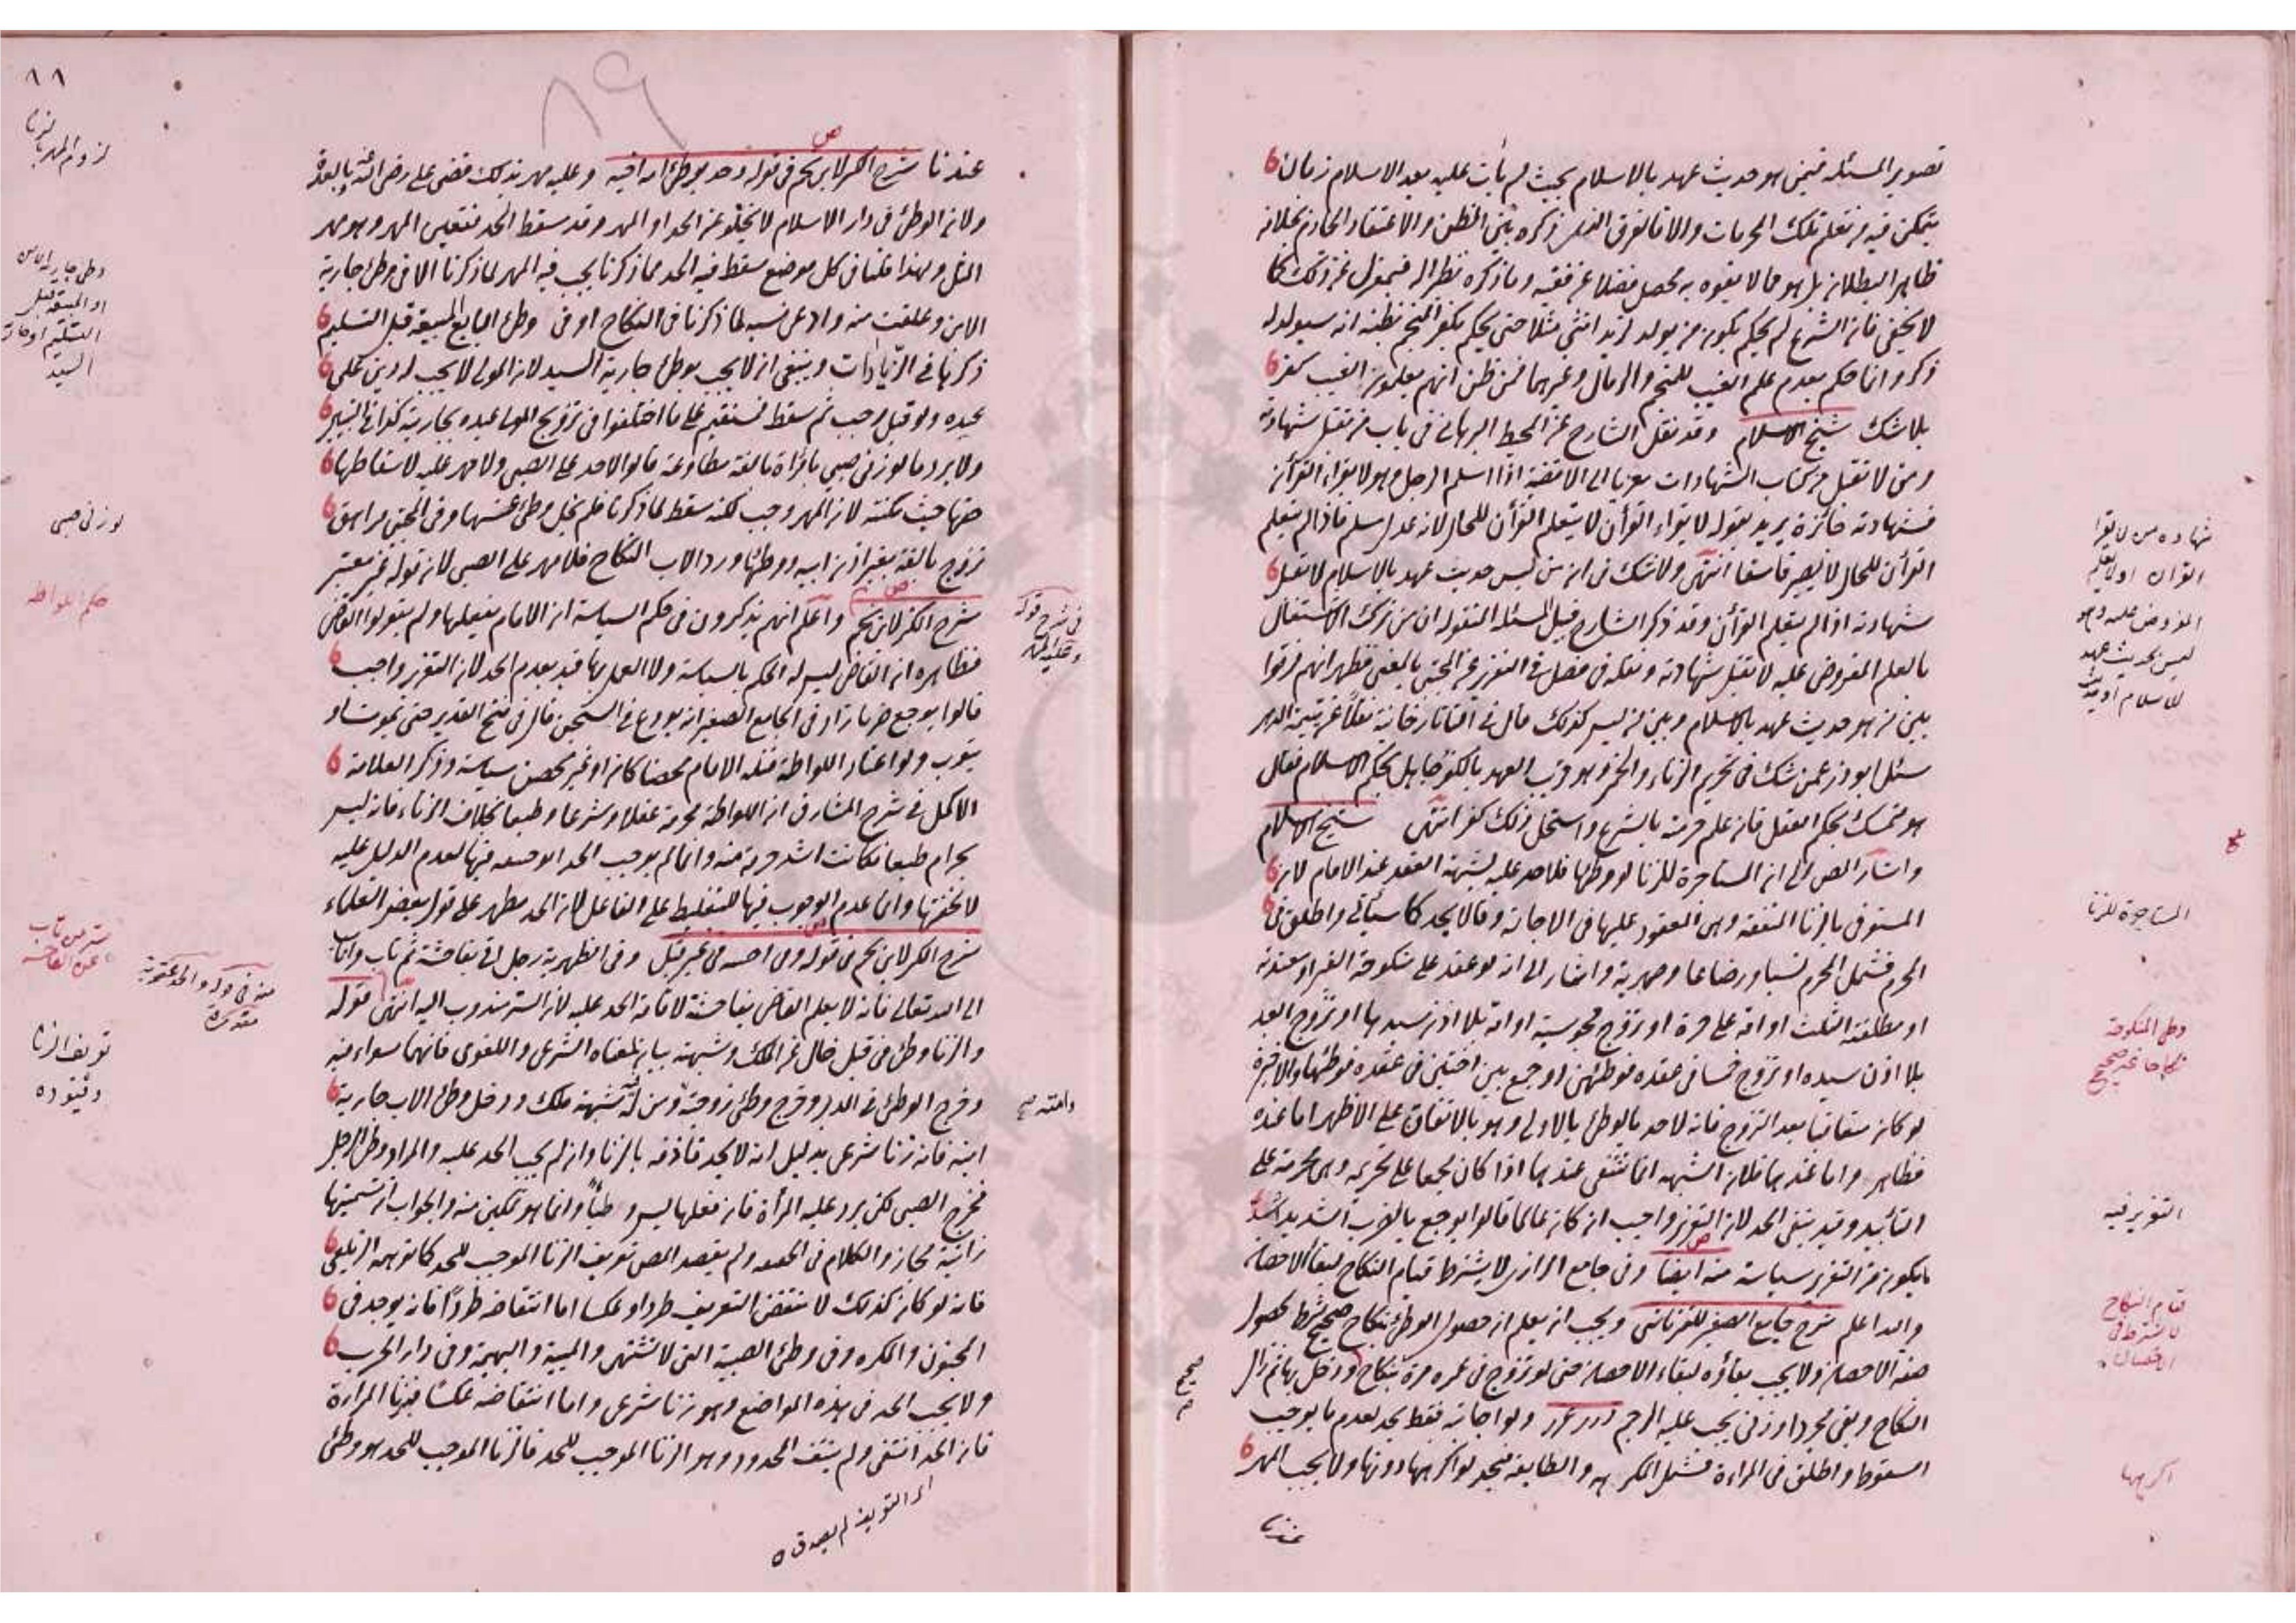 تصوير المسئلة فيمن هو حديث عهد بالاسلام بحيث لم يأت عليه بعد الاسلام زمان
يتمكن فيه من تعلم تلك الحرمات والا فالفرق الذى ذكره بين الظن والاعتقاد الجازم بخلافه
ظاهر البطلان بل هو مما لا يفوه به محصل فضلا عن فقيه وما ذكره نظرا له فبمعزل عن ذلك كما
لا يخفى فان الشرع لم يحكم بكون من يولد لزيد انثى مثلا حتى يحكم بكفر المنجم بظنه انه سيولد له
ذكر وانما حكم بعدم علم الغيب للمنجم والرمال وغيرهما فمن ظن انهم يعلمون الغيب كفر
بلا شك شيخ الاسلام وقد نقل الشارح عن المحيط البرهانى فى باب من تقبل شهادته
ومن لا تقبل من كتاب الشهادات معزيا الى الاقضية اذا اسلم الرجل وهو لا يقراء القرآن
فشهادته جائزة يريد بقوله لا يقراء القرآن لا يتعلم القرآن للحال لانه عدل مسلم فاذا لم يتعلم
القرآن للحال لا يصير فاسقا انتهى ولا شك فى ان من ليس حديث عهد بالاسلام لا تقبل
شهادته اذا لم يتعلم القرآن وقد ذكر الشارح قبيل المسئلة المنقولة ان من ترك الاشتغال
بالعلم المفروض عليه لا تقبل شهادته ونقله فى فصل فى التعزير عن المجتبى بالمعنى فظهر انهم فرقوا
بين من هو حديث عهد بالاسلام وبين من ليس كذلك قال فى التاتارخانية نقلا عن يتيمة الدهر
سئل ابو ذر عمن شك فى تحريم الزناء والخمر وهو قريب العهد بالكفر جاهل بحكم الاسلام فقال
هو متمسك بحكم العقل فان علم حرمته بالشرع واستحل ذلك كفر انتهى شيخ الاسلام
واشار المص الى ان المستاجرة للزنا لو وطئها فلا حد عليه لشبهة العقد عند الامام لان
المستوفى بالزنا المنفعة وهى المعقود عليها فى الاجارة وقالا يحد كما سيأتى واطلق فى
المحرم فشمل المحرم نسبا ورضاعا وصهرية واشار الى انه لو عقد على منكوحة الغير او معتدته
او مطلقته الثلث او امة على حرة او تزوج مجوسية او امة بلا اذن سيدها او تزوج العبد
بلا اذن سيده او تزوج خمسا فى عقدة فوطئهن او جمع بين اختين فى عقدة فوطئهما او الاخيرة
لو كان متعاقبا بعد التزوج فانه لا حد بالوطئ بالاولى وهو بالاتفاق على الاظهر اما عنده
فظاهر واما عندهما فلان الشبهة انما تنتفى عندهما اذا كان مجمعا على تحريمه وهى محرمة على
التأبيد وقيد بنفى الحد لان التعزير واجب ان كان عالما قالوا يوجع بالضرب الشديد اشد
ما يكون من التعزير سياسة منه ايضا وفى جامع الرازى لا يشترط قيام النكاح لبقاء الاحصان
والله اعلم شرح جامع الصغير للتمرتاشى ويجب ان يعلم ان حصول الوطئ بنكاح صحيح شرط لحصول
صفة الاحصان ولا يجب بقاؤه لبقاء الاحصان حتى لو تزوج فى عمره مرة بنكاح ودخل بها ثم زال
النكاح وبقى مجردا وزنى يجب عليه الرجم درر غرر ولو اجابته فقط يحد لعدم ما يوجب
السقوط واطلق فى المراءة فشمل المكرهة والطايعة فيحد لو اكرهها دونها ولا يجب المهر
عندنا
شهادة من لا يقرا
القران او لا يتعلم
المفروض عليه وهو
ليس بحديث عهد
المستاجرة للزنا
وطى المنكوحة
نكاحا غير صحيح
التعزير فيه
قيام النكاح
لا يشترط فى
الاحصان
اكرهها
صحيح
صح
٨٩
عندنا شرح الكنز لابن نجم فى قوله وحد بوطئ امة اخيه وعليه مهر بذلك قضى على رضى الله عنه وبالعدة
ولان الوطئ فى دار الاسلام لا يخلو عن الحد او المهر وقد سقط الحد فتعين المهر وهو مهر
المثل ولهذا قلنا فى كل موضع سقط فيه الحد مما ذكرنا يجب فيه المهر لما ذكرنا الا فى وطئ جارية
الابن وعلقت منه وادعى نسبه لما ذكرنا فى النكاح او فى وطئ البايع المبيعة قبل التسليم
ذكرها فى الزيادات وينبغى ان لا يجب بوطئ جارية السيد لان المولى لا يجب له دين على
عبده ولو قيل وجب ثم سقط فمستقيم على ما اختلفوا فى تزويج المولى عبده بجاريته كذا فى التبيين
ولا يرد ما لو زنى صبى بامرأة بالغة مطاوعة قالوا لا حد على الصبى ولا مهر عليه لاسقاطها
حقها حيث مكنته لان المهر وجب لكنه سقط لما ذكرنا فلم يخل وطئ عنهما وفى المجتبى مراهق
تزوج بالغة بغير اذن ابيه ووطئها ورد الاب النكاح فلا مهر على الصبى لان قوله غير معتبر
شرح الكنز لابن نجم واعلم انهم يذكرون فى حكم السياسة ان الامام يفعلها ولم يقولوا القاضى
فظاهره ان القاضى ليس له الحكم بالسياسة ولا العمل بها قيد بعدم الحد لان التعزير واجب
قالوا يوجع ضربا زاد فى الجامع الصغير انه يودع فى السجن قال فى فتح القدير حتى يموت او
يتوب ولو اعتاد اللواطة قتله الامام محصنا كان او غير محصن سياسة وذكر العلامة
الاكمل فى شرح المشارق ان اللواطة محرمة عقلا وشرعا وطبعا بخلاف الزناء فانه ليس
بحرام طبعا فكانت اشد حرمة منه وانما لم يوجب الحد ابو حنيفة فيها لعدم الدليل عليه
لا لخفتها وانما عدم الوجوب فيها للتغليظ على الفاعل لان الحد مطهر على قول بعض العلماء
شرح الكنز لابن نجم فى قوله ومن اجنبية فى غير قبل وفى الظهيرية رجل اتى بفاحشة ثم تاب واناب
الى الله تعالى فانه لا يعلم القاضى بفاحشته لاقامة الحد عليه لان الستر مندوب اليه انتهى قوله
والزنا وطئ فى قبل خال عن الملك وشبهته بيان لمعناه الشرعى واللغوى فانهما سواء فيه
وخرج الوطئ فى الدبر وخرج وطئ زوجته ومن له شبهة ملك ودخل وطئ الاب جارية
ابنه فانه زنا شرعى بدليل انه لا يحد قاذفه بالزنا وان لم يجب الحد عليه والمراد وطئ الرجل
فخرج الصبى لكن يرد عليه المرأة فان فعلها ليس وطئا وانما هو تمكين منه والجواب ان تسميتها
زانية مجاز والكلام فى الحقيقة ولم يقصد المص تعريف الزنا الموجب للحد كما توهمه الزيلعى
فانه لو كان كذلك لانتقض التعريف طردا وعكسا اما انتقاضه طردا فانه يوجد فى
المجنون والمكره وفى وطئ الصبية التى لا تشتهى والميتة والبهيمة وفى دار الحرب
ولا يجب الحد فى هذه المواضع وهو زنا شرعى واما انتقاضه عكسا فبزنا المراءة
فان الحد انتفى ولم ينتف المحدود وهو الزنا الموجب للحد فالزنا الموجب للحد هو وطئ
اى التعريف لم يصدق
لزوم المهر بالزنا
وطى جارية الابن
او المبيعة قبل
التسليم او جارية
السيد
لو زنى صبى
حكم اللواطة
فى شرح قوله
ستر من تاب
عن الفاحشة
تعريف الزنا
وقيوده
وامته صح